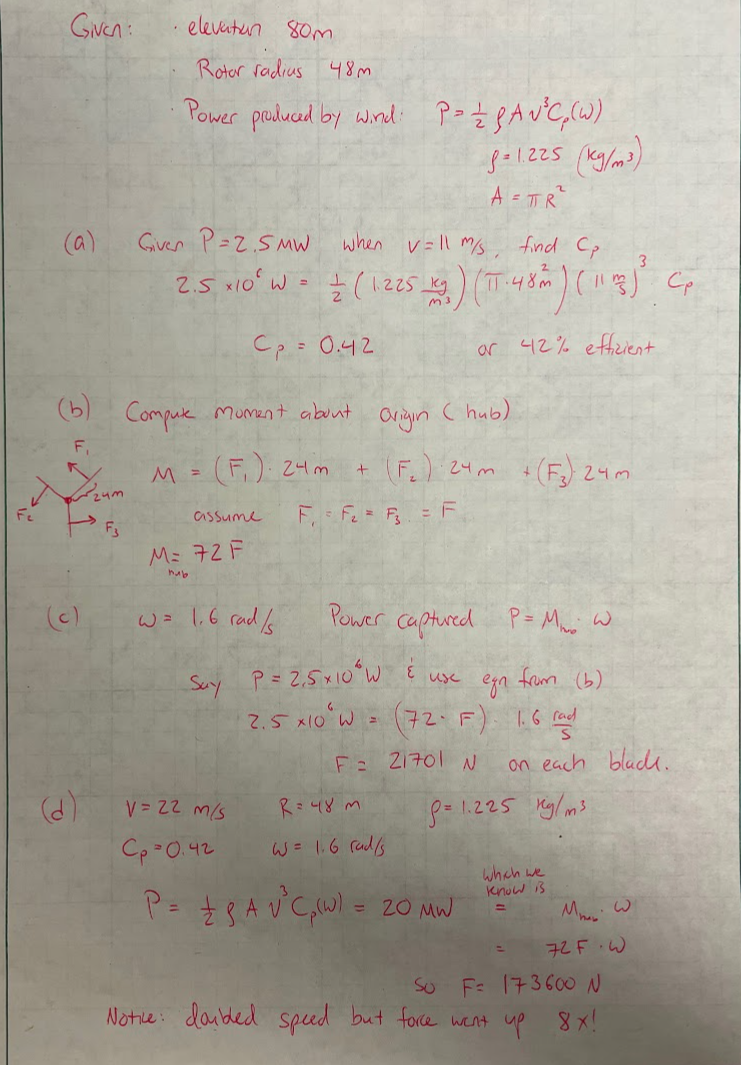 Given: · elevation 80m
· Rotor radius 48m
· Power produced by wind: P = 1/2 ρ A v³ Cp(W)
ρ = 1.225 (kg/m³)
A = πR²
(a) Given P = 2.5 MW when v = 11 m/s, find Cp
2.5 × 10⁶ W = 1/2 (1.225 kg/m³) (π · 48² m) (11 m/s)³ Cp
Cp = 0.42 or 42% efficient
(b) Compute moment about origin (hub)
F₁
F₂
24m
F₃
M = (F₁) · 24m + (F₂) · 24m + (F₃) · 24m
assume F₁ = F₂ = F₃ = F
M hub = 72 F
(c) ω = 1.6 rad/s Power captured P = M hub · ω
Say P = 2.5 × 10⁶ W & use eqn from (b)
2.5 × 10⁶ W = (72 · F) · 1.6 rad/s
F = 21701 N on each blade.
(d) V = 22 m/s R = 48 m ρ = 1.225 kg/m³
Cp = 0.42 ω = 1.6 rad/s
which we know is
P = 1/2 ρ A V³ Cp(W) = 20 MW = M hub · ω
= 72 F · ω
so F = 173600 N
Notice: doubled speed but force went up 8x!